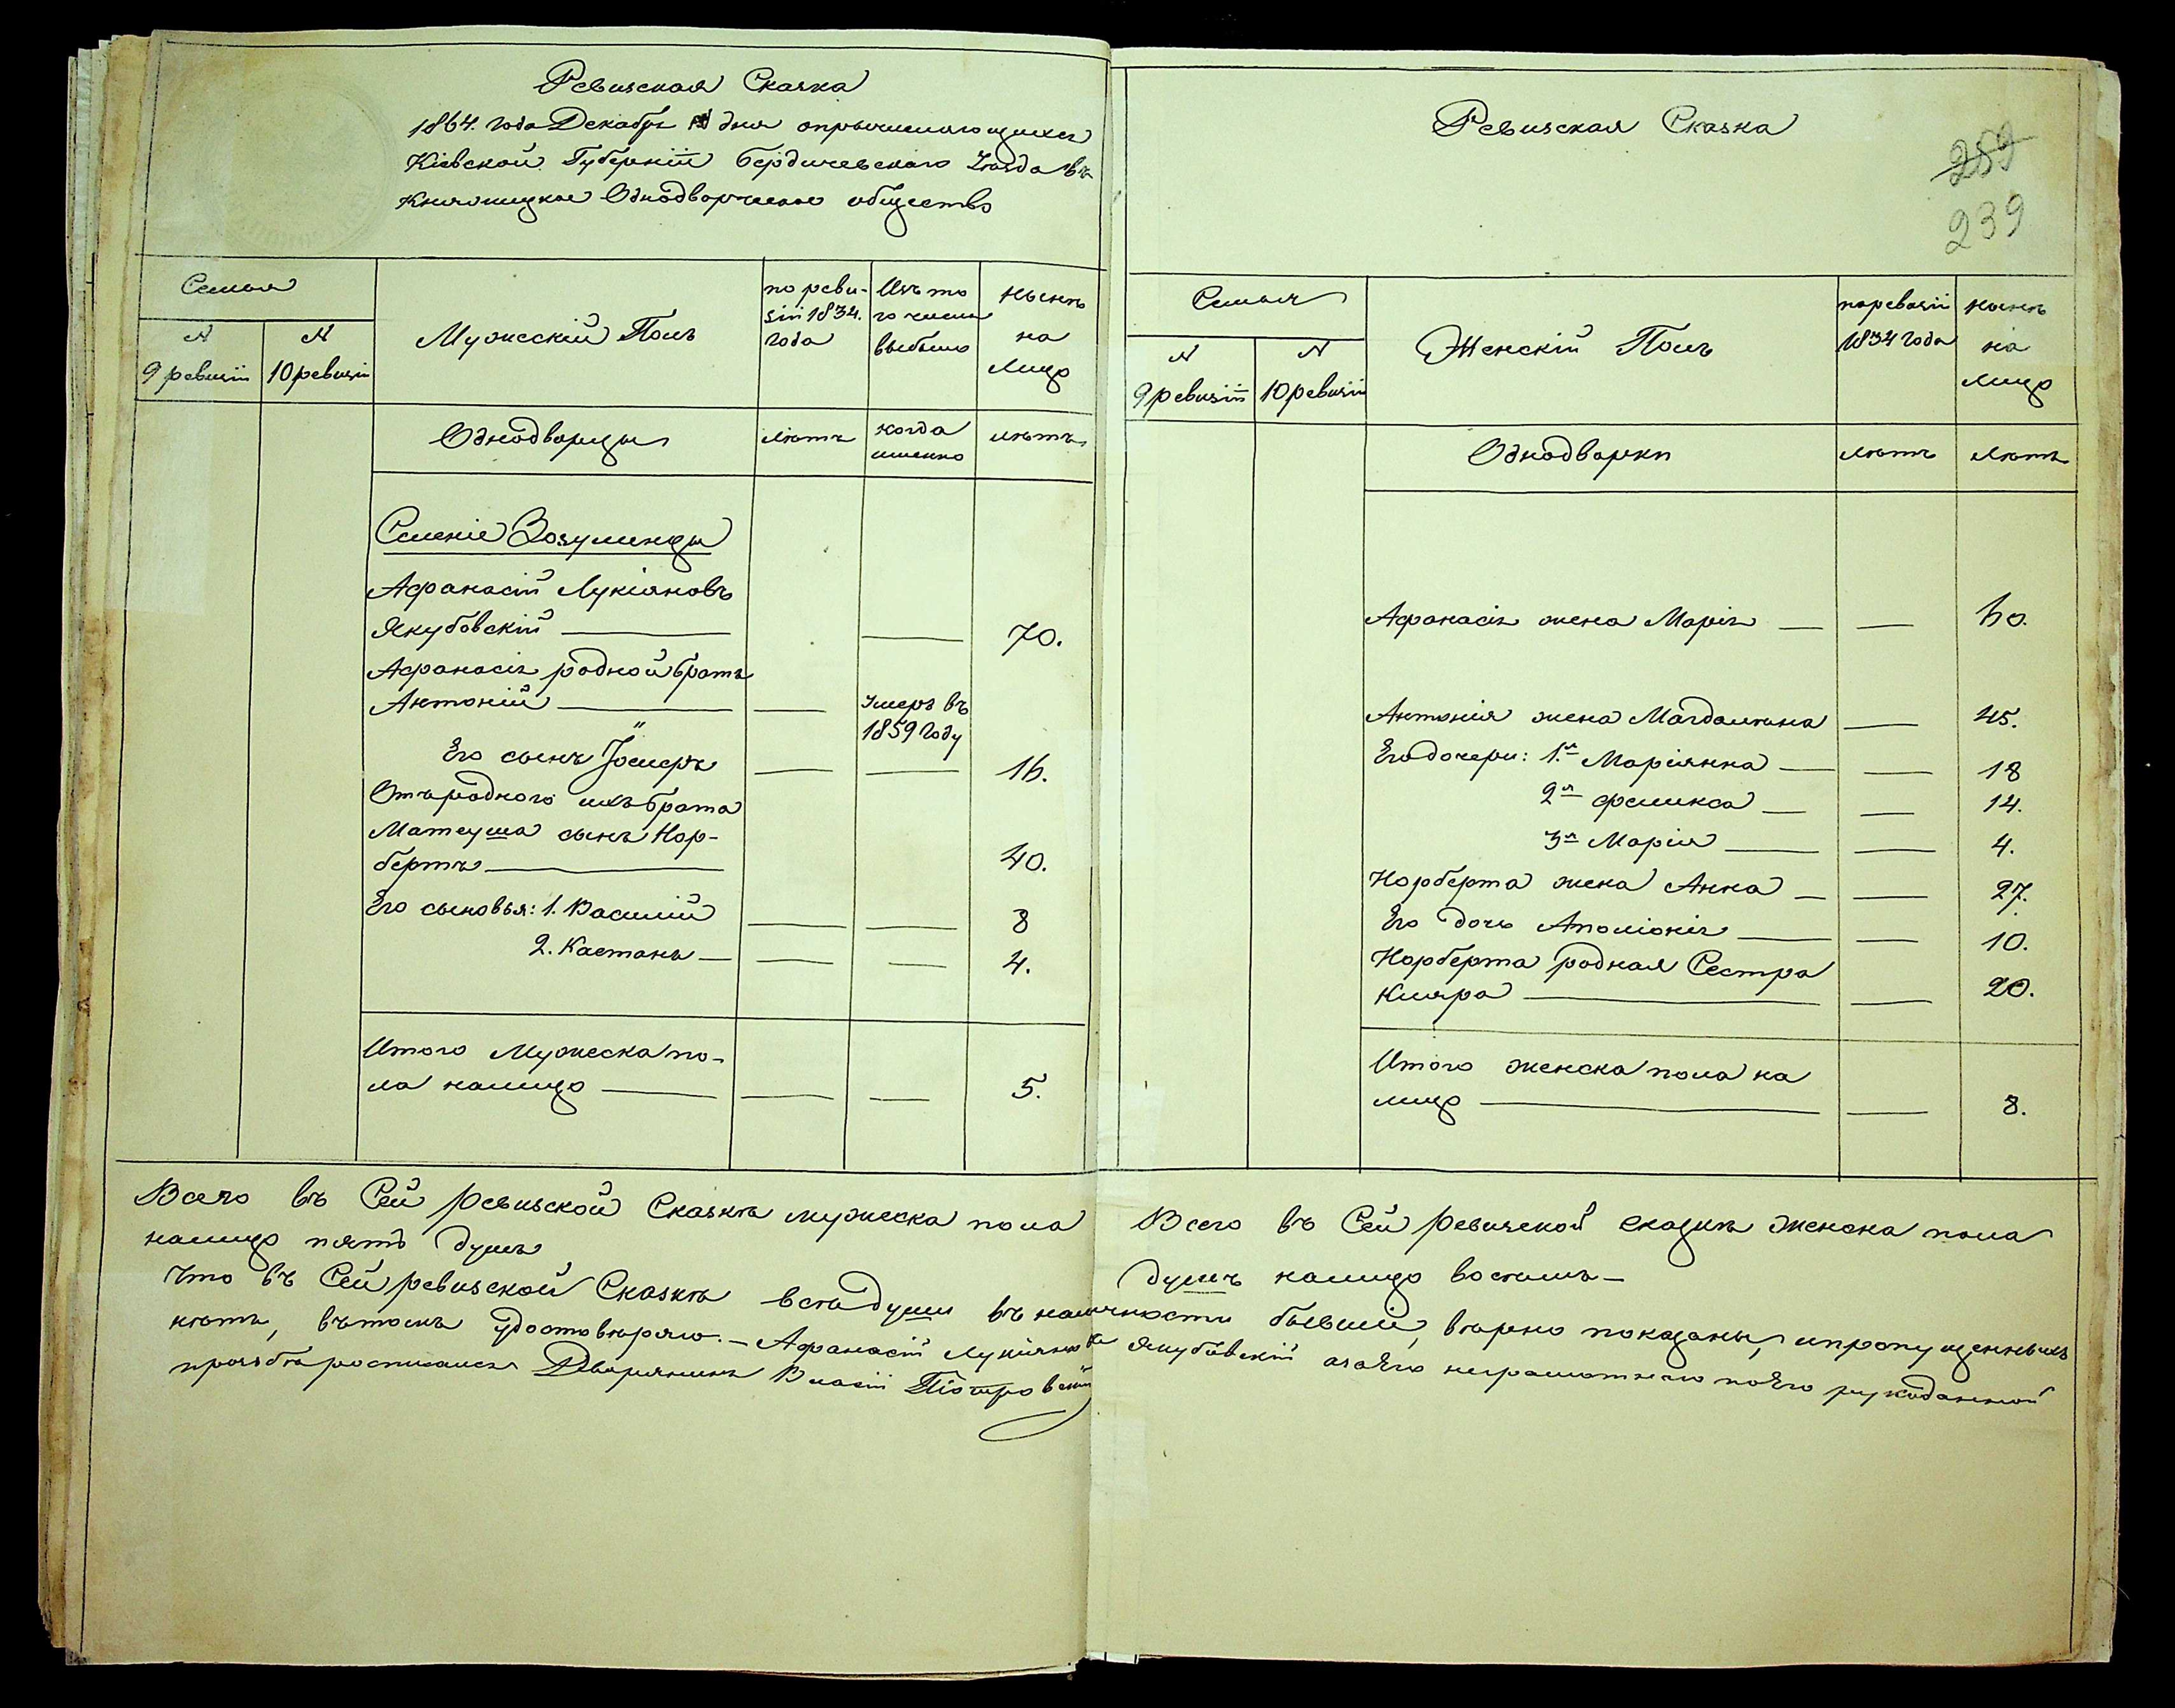 Ревизская Сказка
1864. года Декабря дня опричисляющихся
Кіевской Губерніи Бердичевскаго Уезда въ
Одноворческое общество
Семья
N
9 ревизіи
N
10 ревизіи
Мужескій Полъ
по реви-
зіи 1834.
года
Изъ то
го числа
выбыло
нынѣ
на
лицо
Однодворцы
лѣтъ
когда
именно
лѣтъ
Селеніе Зозулинцы
Афанасій Лукіяновъ
Якубовскій
70.
Афанасія родной братъ
Антоній
Умеръ въ
1859 году
Его сынъ Іосифъ
16.
Отъ родного ихъ брата
Матеуша сынъ Нор-
бертъ
40.
Его сыновья: 1. Василій
8
2. Каетанъ
4.
Итого Мужеска по-
ла налицо
5.
Всего въ Сей ревизской Сказкѣ мужеска пола
налицо пять душъ
Ревизская Сказка
259
239
Семья
N
9 ревизіи
N
10 ревизіи
Женскій Полъ
по ревизіи
1834 года
нынѣ
на
лицо
Однодворки
лѣтъ
лѣтъ
Афанасія жена Марія
60.
Антонія жена Магдалина
45.
Его дочери: 1.я Маріянна
18
2я Феликса
14.
3я Марія
4.
Норберта жена Анна
27.
Его дочь Аполіонія
10.
Норберта родная Сестра
Кляра
20.
Итого женска пола на
лицо
8.
Всего въ Сей ревизской сказкѣ женска пола
душъ налицо восемь
Что въ Сей ревизской Сказкѣ всѣ души въ наличности бывшіи, вѣрно показаны, и пропущенныхъ
нѣтъ, въ томъ удостовѣряю. Афанасій Лукіяновъ Якубовскій а за его неграмотнаго по его рукоданной
прозьбѣ росписался Дворянинъ Власій